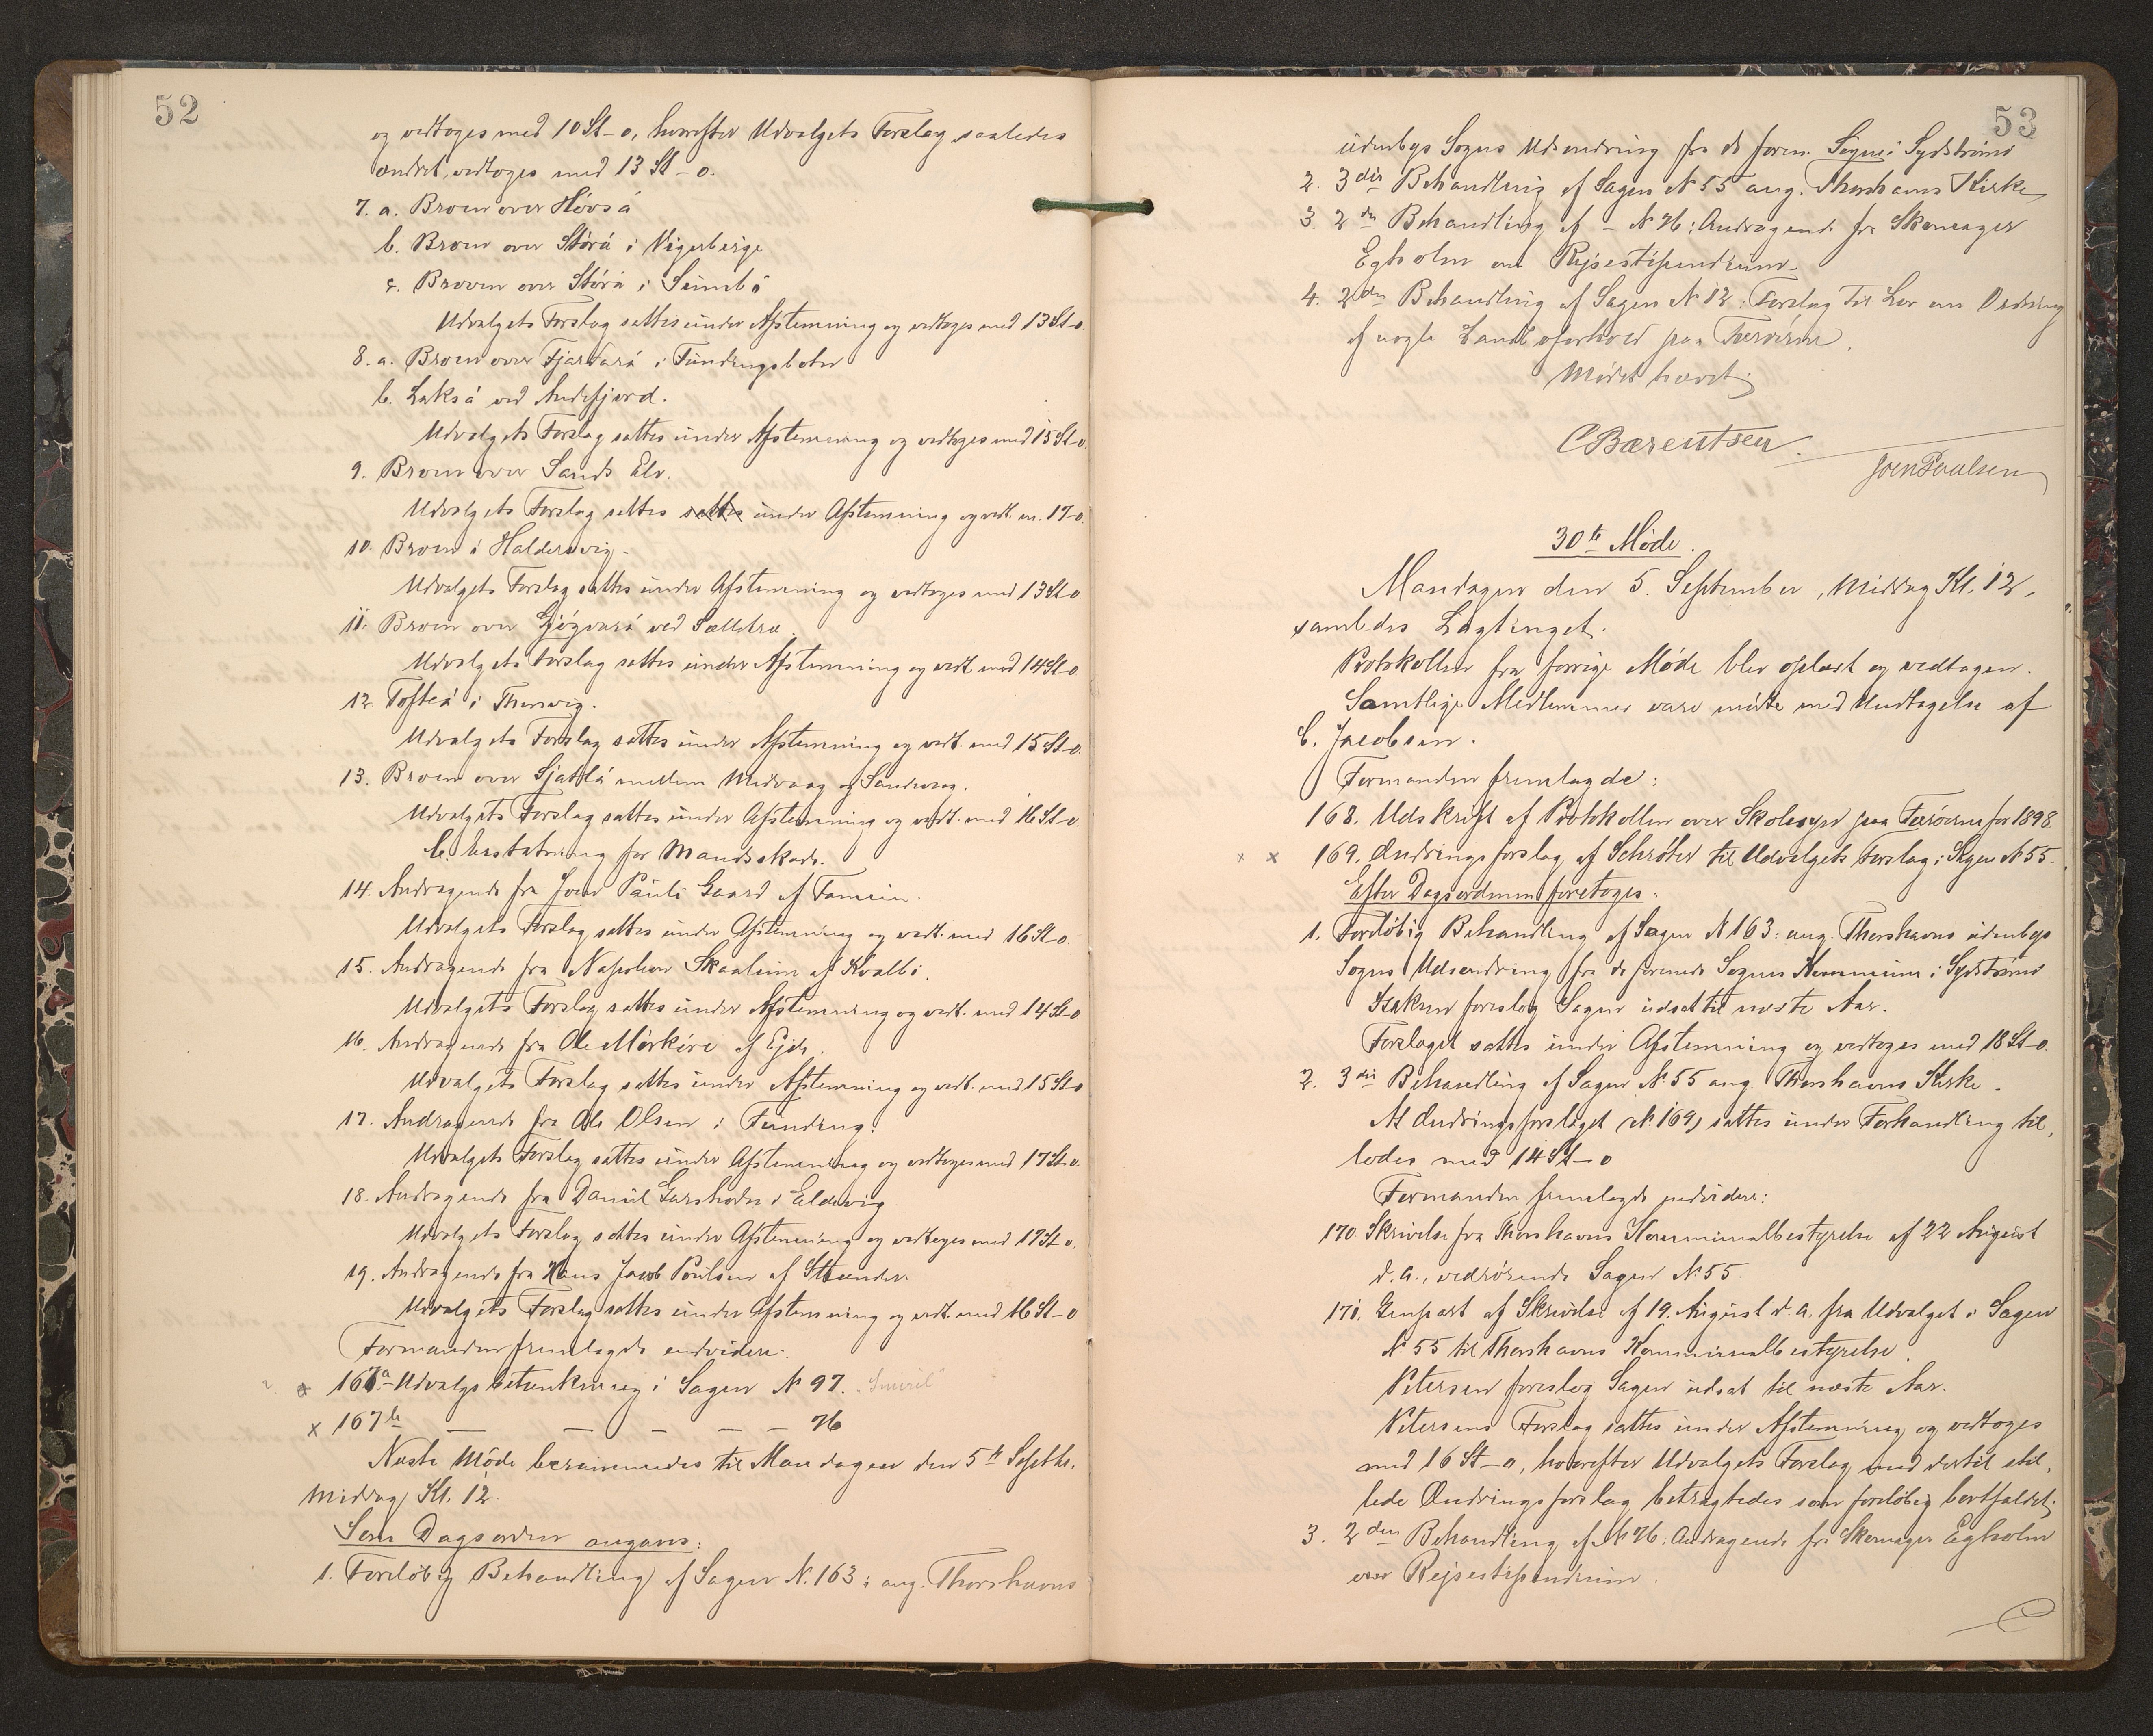 52
og vedtoges med 10 St-0, hvorefter Udvalgets Forslag saaledes
ændret, vedtoges med 13 St-0.
7. a. Broen over Hovsá
b. Broen over Stórá i Vigerbejge
c. Broen over Stórá i Sumbö
Udvalgets Forslag sattes under Afstemning og vedtoges med 13 St-0.
8. a. Broen over Fjardará i Fundingsbotn
b. Laksá ved Andefjord.
Udvalgets Forslag sattes under Afstemning og vedtoges med 15 St-0.
9. Broen over Sands Elv.
Udvalgets Forslag sattes sattes under Afstemning og vedt. m. 17-0.
10. Broen i Haldersvig.
Udvalgets Forslag sattes under Afstemning og vedtoges med 13 St-0
11. Broen over Gjógvará ved Sælletræ
Udvalgets Forslag sattes under Afstemning og vedt. med 14 St-0
12. Tofteá i Thorsvig.
Udvalgets Forslag sattes under Afstemning og vedt. med 15 St-0.
13. Broen over Sjatlá mellem Midvaag og Sandevaag.
Udvalgets Forslag sattes under Afstemning og vedt. med 16 St-0.
b. Erstatning for Mandsskade.
14. Andragende fra Joen Pauli Gaard af Famien.
Udvalgets Forslag sattes under Afstemning og vedt. med 16 St-0.
15. Andragende fra Napoleon Skaalum af Kvalbö.
Udvalgets Forslag sattes under Afstemning og vedt. med 14 St-0
16. Andragende fra Ole Mörköre af Ejde.
Udvalgets Forslag sattes under Afstemning og vedt. med 15 St-0
17. Andragende fra Ole Olsen i Funding.
Udvalgets Forslag sattes under Afstemning og vedtoges med 17 St-0.
18. Andragende fra Daniel Garshodn i Eldevig
Udvalgets Forslag sattes under Afstemning og vedtoges med 17 St-0.
19. Andragende fra Hans Jacob Poulsen af Strender.
Udvalgets Forslag sattes under Afstemning og vedt. med 16 St-0
Formanden fremlagde endvidere:
x 167a Udvalgsbetænkning i Sagen N 97.
x 167b — — — — — 76
Næste Møde berammedes til Mandagen den 5te Septbr.
Middag Kl. 12.
Som Dagsorden angaves:
1. Foreløbig Behandling af Sagen N. 163: ang. Thorshavns
53
udenbys Sogns Udsondring fra de foren. Sogne i Sydströmö
2. 3die Behandling af Sagen N 55 ang. Thorshavns Kirke
3. 2den Behandling af — N 76: Andragende fra Skomager
Egholm om Rejsestipendium.
4. 2den Behandling af Sagen N 12: Forslag til Lov om Ordning
af nogle Landboforhold paa Færöerne.
Mødet hævet.
C Bærentsen.
Joen Poulsen
30te Møde.
Mandagen den 5. September, Middag Kl. 12,
samledes Lagtinget.
Protokollen fra forrige Møde blev oplæst og vedtagen.
Samtlige Medlemmer vare mödte med Undtagelse af
C. Jacobsen.
Formanden fremlagde:
168. Udskrift af Protokollen over Skolesyn paa Færöerne for 1898.
x x 169. Ændringsforslag af Schröter til Udvalgets Forslag i Sagen N 55.
Efter Dagsordenen foretoges:
1. Foreløbig Behandling af Sagen N 163: ang. Thorshavns udenbys
Sogns Udsondring fra de forenede Sognes Kommune i Sydströmö
Isaksen foreslog Sagen udsat til næste Aar.
Forslaget sattes under Afstemning og vedtoges med 18 St-0.
2. 3die Behandling af Sagen N. 55 ang. Thorshavns Kirke.
At Ændringsforslaget (N. 169) sattes under Forhandling til,
lodes med 14 St-0
Formanden fremlagde endvidere:
170. Skrivelse fra Thorshavns Kommunalbestyrelse af 22 August
d. A., vedrörende Sagen N. 55.
171. Genpart af Skrivelse af 19. August d. A. fra Udvalget i Sagen
N 55 til Thorshavns Kommunalbestyrelse.
Petersen foreslog Sagen udsat til næste Aar.
Petersens Forslag sattes under Afstemning og vedtoges
med 16 St-0, hvorefter Udvalgets Forslag med dertil stil,
lede Ændringsforslag betragtedes som foreløbig bortfaldet.
3. 2den Behandling af N 76: Andragende fra Skomager Egholm
om Rejsestipendium.